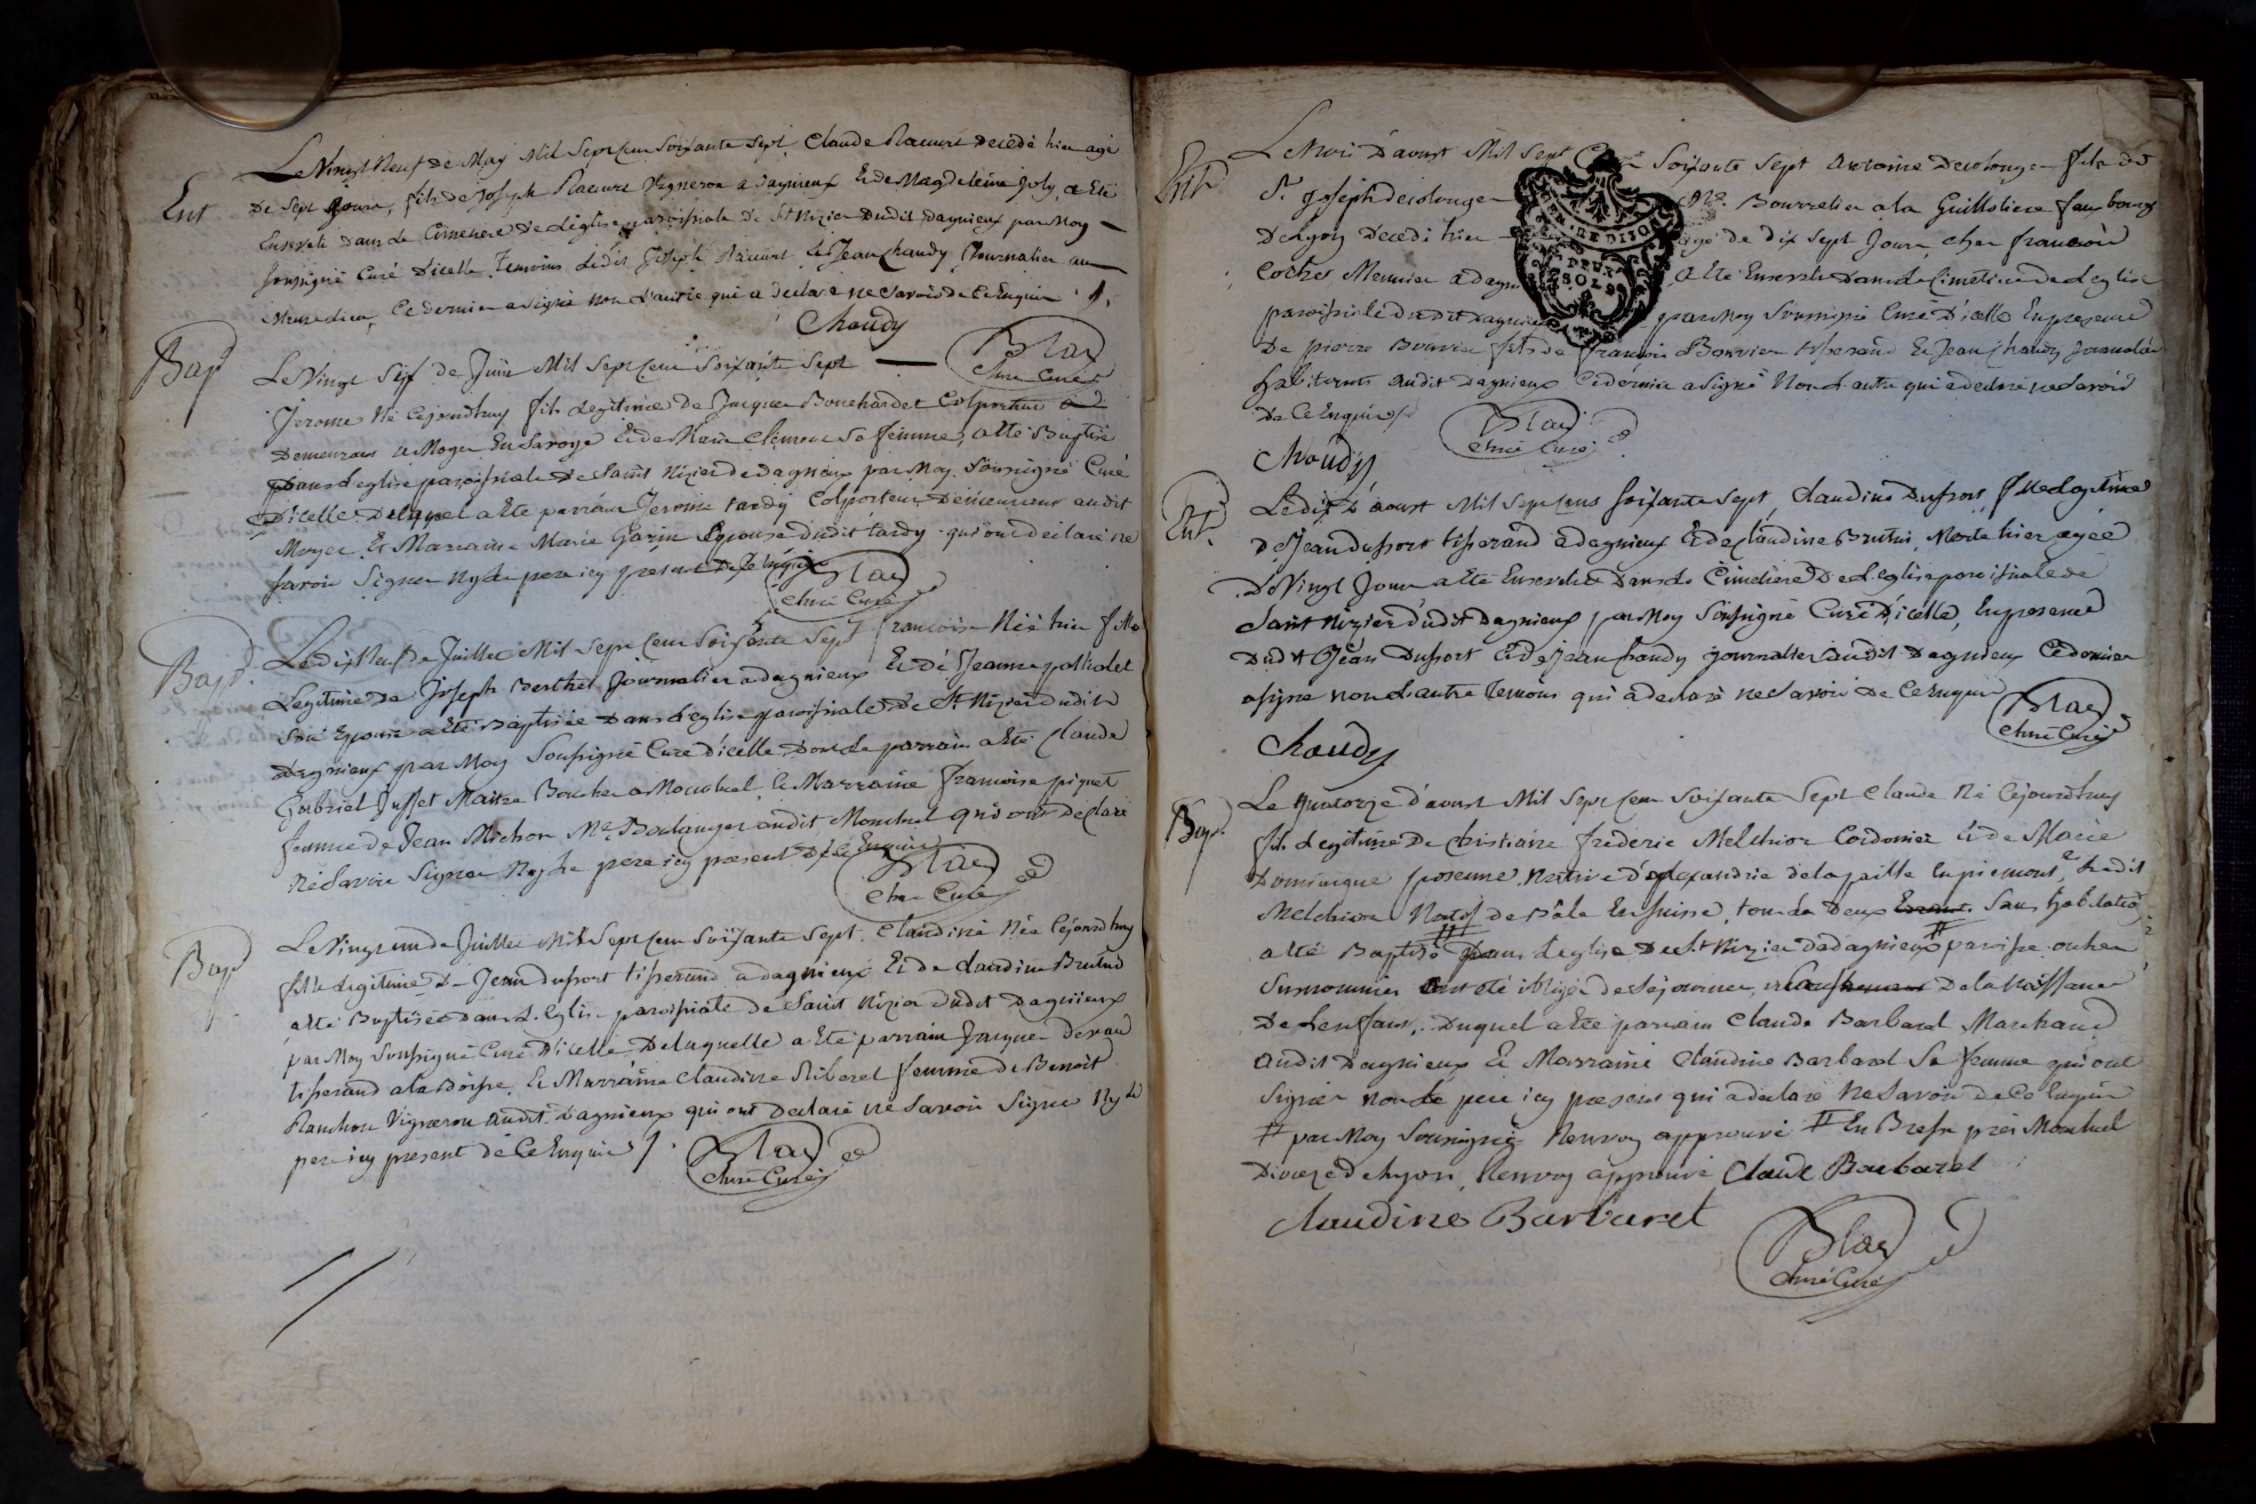 Ent
Le Vingt Neuf de May Mil Sept Cent Soixante Sept Claude Racurt decedé hier agé
De Sept Jours, fils de Joseph Racurt Vigneron a dagnieux Et de Magdeleine Joly, a Eté
Enseveli Dans Le Cimetiere De Léglise paroissiale De St Nizier Dudit dagnieux par Moy
Soussigné Curé D'icelle Temoins Ledit Joseph Racurt Et Jean Chaudy Journalier au
Ce dernier a signé non L'autre qui a declaré ne Savoir de Ce Enquis
Chaudy
Blad
Curé
Bap
Le Vingt Six de Juin Mil Sept Cent Soixante Sept
Jerome Né Cejourdhuy fils Legitime de Jacques Bouchardet Colporteur
Demeurant a Moye En Savoye Et de Marie Clement Sa femme, a Eté Baptisé
Dans L'eglise paroissiale De Saint Nizier de dagnieux par Moy Soussigné Curé
D'icelle Duquel a Eté parrain Jerome tardy Colporteur Demeurant audit
Moyer Et Marraine Marie Garin Epouse dudit tardy qui ont declaré ne
Savoir Signer Ny Le pere icy présent De Ce Enquis
Blad
Curé
Bapt.
Le dix Neuf de Juillet Mil Sept Cent Soixante Sept francoise Née hier fille
Legitime De Joseph Berthet Journalier a dagnieux Et De Jeanne pollodet
Son Epouse a Eté Baptisée Dans L'eglise paroissiale De St Nizier dudit
Dagnieux par Moy Soussigné Curé D'icelle Dont Le parrain a Eté Claude
Gabriel Juffet Maitre Boucher a Montluel Et Marraine francoise piquet
femme de Jean Michon Me Boulanger audit Montluel qui ont Declaré
Ne Savoir Signer Ny Le pere icy present De Ce Enquis
Blad
Curé
Bap
Le Vingt un de Juillet Mil Sept Cent Soixante Sept Claudine Née Cejourdhuy
fille Legitime De Jean dufort tisserand a dagnieux Et De Claudine Brutus
a Eté Baptisée Dans L'Eglise paroissiale de Saint Nizier Dudit Dagnieux
par Moy Soussigné Curé D'icelle De laquelle a Eté parrain Jacques
tisserand a la Boisse Et Marraine Claudine Riberel femme de Benoit
Planchon Vigneron audit Dagnieux qui ont Declaré ne Savoir Signer Ny Le
pere icy present de Ce Enquis
Blad
Curé
Ent
Le trois D'aoust Mil Sept Cent Soixante Sept Antoine Decolonges fils de
Sr. Joseph decolonges Me. Bourrelier a la Guillotiere faubourg
De Lyon Decedé hier agé de dix Sept Jours, chez francois
Cochet Meunier a dagnieux a Eté Enseveli Dans Le Cimetiere de L'eglise
paroissiale dudit dagnieux par Moy Soussigné Curé D'icelle En presence
De pierre Bouvier fils de francois Bouvier tisserand Et Jean Chaudy Journalier
habitants audit dagnieux Ce dernier a Signé Non L'autre qui a declaré ne Savoir
De Ce Enquis
Chaudy
Blad
Curé
DEUX
SOLS
Ent.
Le dix d'aoust Mil Sept Cens Soixante Sept Claudine Dufort fille Legitime
De Jean dufort tisserand a dagnieux Et de Claudine Brutus, Morte hier agée
De Vingt Jours a Eté Ensevelie Dans Le Cimetiere De L'Eglise paroissiale de
Saint Nizier Dudit Dagnieux par Moy Soussigné Curé D'icelle, En presence
Dudit Jean Dufort Et de Jean Chaudy Journalier audit Dagnieux Ce dernier
a signé non L'autre temoin qui a declaré ne Savoir De Ce Enquis
Chaudy
Blad
Curé
Bapt.
Le Quatorze d'aoust Mil Sept Cent Soixante Sept Claude Né Cejourdhuy
fils Legitime De Christiane frederic Melchior Cordonier Et de Marie
Dominique native d'alexandrie de la paille En piemont, Ledit
Melchior Natif de Bâle En Suisse, tous Les Deux Sans habitation
a Eté Baptisé Dans L'eglise De St Nizier De dagnieux paroisse ou Les
Surnommés ont été obligés de Sejourner, De la Naissance
De L'enfant, Duquel a Eté parrain Claude Barbaret Marchand
audit Dagnieux Et Marraine Claudine Barbaret Sa femme qui ont
Signés non Le pere icy present qui a declaré Ne Savoir de Ce Enquis
# par Moy Soussigné Renvoy approuvé # En Bresse près Montluel
Dioceze de Lyon, Renvoy approuvé Claude Barbaret
Claudine Barbaret
Blad
Curé